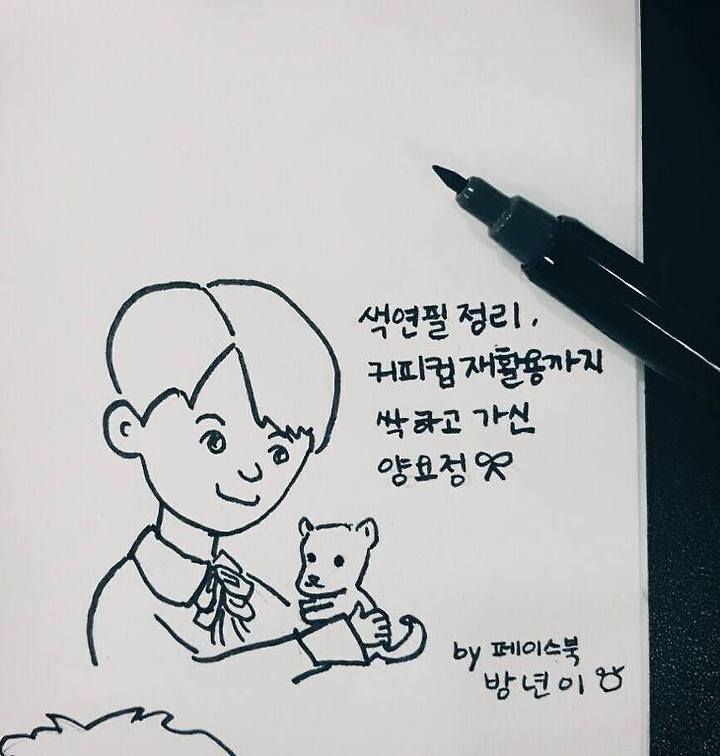 색연필 정리,
커피컵 재활용까지
싹 하고 가신
양요정
by 페이스북
방년이